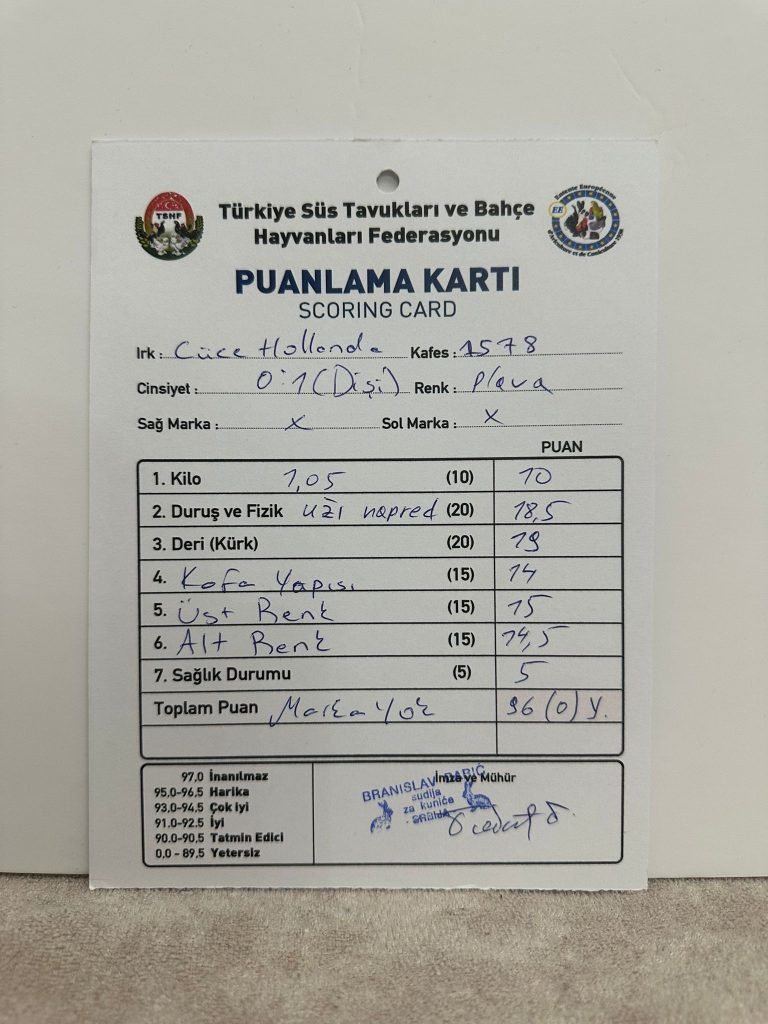 TSHF
Türkiye Süs Tavukları ve Bahçe
Hayvanları Federasyonu
Entente Européenne
EE
d'Aviculture et de Cuniculture 1938
PUANLAMA KARTI
SCORING CARD
Irk : Cüce Hollanda Kafes : 1578
Cinsiyet : 0:1 (Dişi) Renk : Plava
Sağ Marka : x Sol Marka : x
PUAN
1. Kilo 1,05 (10) 10
2. Duruş ve Fizik uži napred (20) 18,5
3. Deri (Kürk) (20) 19
4. Kafa Yapısı (15) 14
5. Üst Renk (15) 15
6. Alt Renk (15) 14,5
7. Sağlık Durumu (5) 5
Toplam Puan Marka Yok 96 (0) Y.
97,0 İnanılmaz
95,0-96,5 Harika
93,0-94,5 Çok iyi
91.0-92.5 İyi
90.0-90,5 Tatmin Edici
0,0 - 89,5 Yetersiz
İmza ve Mühür
BRANISLAV
sudija
za kuniće
SRBIJA